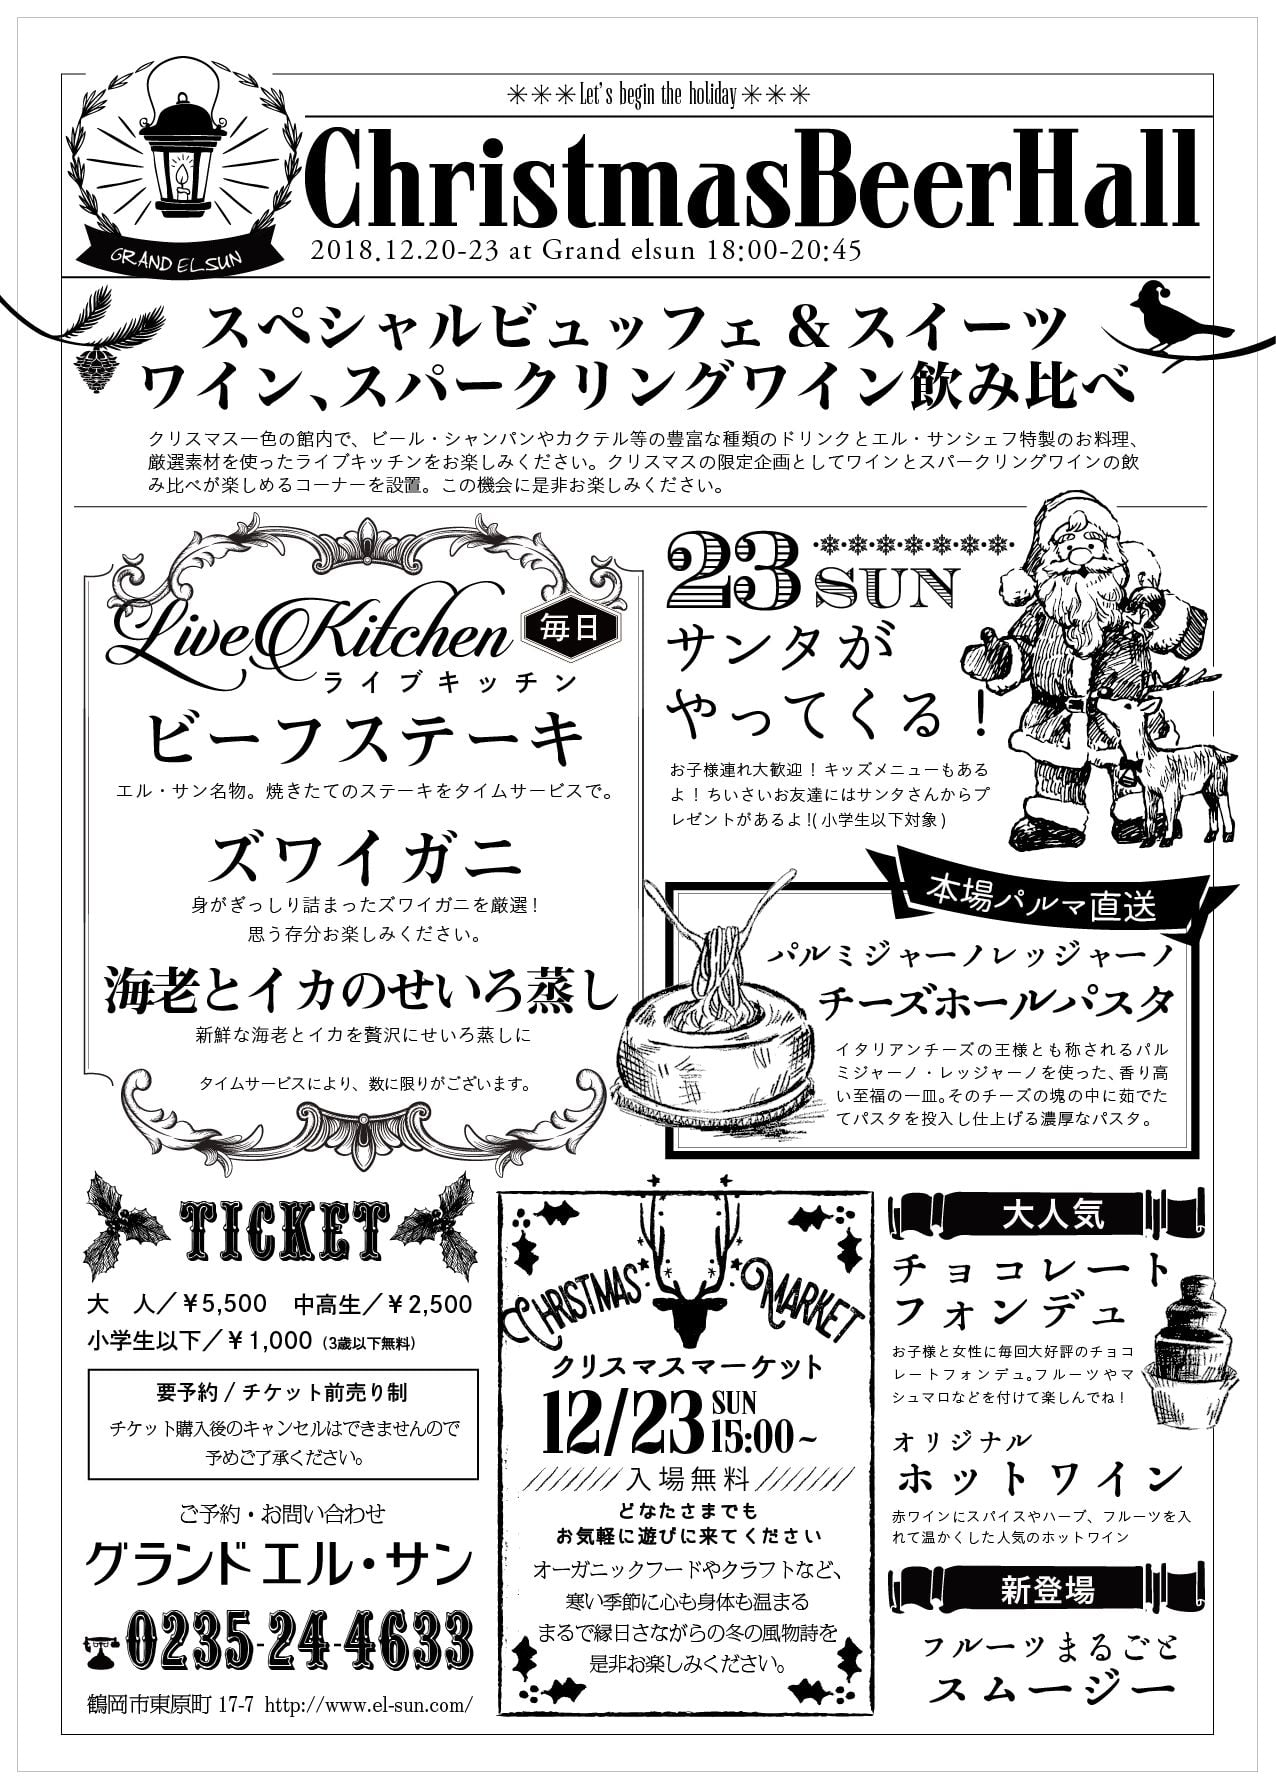 Let's begin the holiday
ChristmasBeerHall
2018.12.20-23 at Grand elsun 18:00-20:45
GRAND ELSUN
スペシャルビュッフェ & スイーツ
ワイン、スパークリングワイン飲み比べ
クリスマス一色の館内で、ビール・シャンパンやカクテル等の豊富な種類のドリンクとエル・サンシェフ特製のお料理、
厳選素材を使ったライブキッチンをお楽しみください。クリスマスの限定企画としてワインとスパークリングワインの飲
み比べが楽しめるコーナーを設置。この機会に是非お楽しみください。
Live Kitchen 毎日
ライブキッチン
ビーフステーキ
エル・サン名物。焼きたてのステーキをタイムサービスで。
ズワイガニ
身がぎっしり詰まったズワイガニを厳選！
思う存分お楽しみください。
海老とイカのせいろ蒸し
新鮮な海老とイカを贅沢にせいろ蒸しに
タイムサービスにより、数に限りがございます。
23 SUN
サンタが
やってくる！
お子様連れ大歓迎！キッズメニューもある
よ！ちいさいお友達にはサンタさんからプ
レゼントがあるよ!(小学生以下対象)
本場パルマ直送
パルミジャーノレッジャーノ
チーズホールパスタ
イタリアンチーズの王様とも称されるパル
ミジャーノ・レッジャーノを使った、香り高
い至福の一皿。そのチーズの塊の中に茹でた
てパスタを投入し仕上げる濃厚なパスタ。
TICKET
大　人／￥5,500　中高生／￥2,500
小学生以下／￥1,000（3歳以下無料）
要予約 / チケット前売り制
チケット購入後のキャンセルはできませんので
予めご了承ください。
ご予約・お問い合わせ
グランド エル・サン
0235-24-4633
鶴岡市東原町 17-7 http://www.el-sun.com/
CHRISTMAS MARKET
クリスマスマーケット
12/23 SUN 15:00~
///////入場無料///////
どなたさまでも
お気軽に遊びに来てください
オーガニックフードやクラフトなど、
寒い季節に心も身体も温まる
まるで縁日さながらの冬の風物詩を
是非お楽しみください。
大人気
チョコレート
フォンデュ
お子様と女性に毎回大好評のチョコ
レートフォンデュ。フルーツやマ
シュマロなどを付けて楽しんでね！
オリジナル
ホットワイン
赤ワインにスパイスやハーブ、フルーツを入
れて温かくした人気のホットワイン
新登場
フルーツまるごと
スムージー